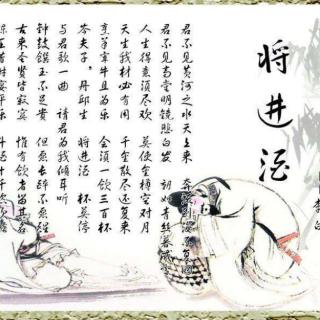 将进酒
李白
君不见黄河之水天上来 奔流到海不复回
君不见高堂明镜悲白发 朝如青丝暮成雪
人生得意须尽欢 莫使金樽空对月
天生我材必有用 千金散尽还复来
烹羊宰牛且为乐 会须一饮三百杯
岑夫子，丹邱生 将进酒 杯莫停
与君歌一曲 请君为我倾耳听
钟鼓馔玉不足贵 但愿长醉不愿醒
古来圣贤皆寂寞 惟有饮者留其名